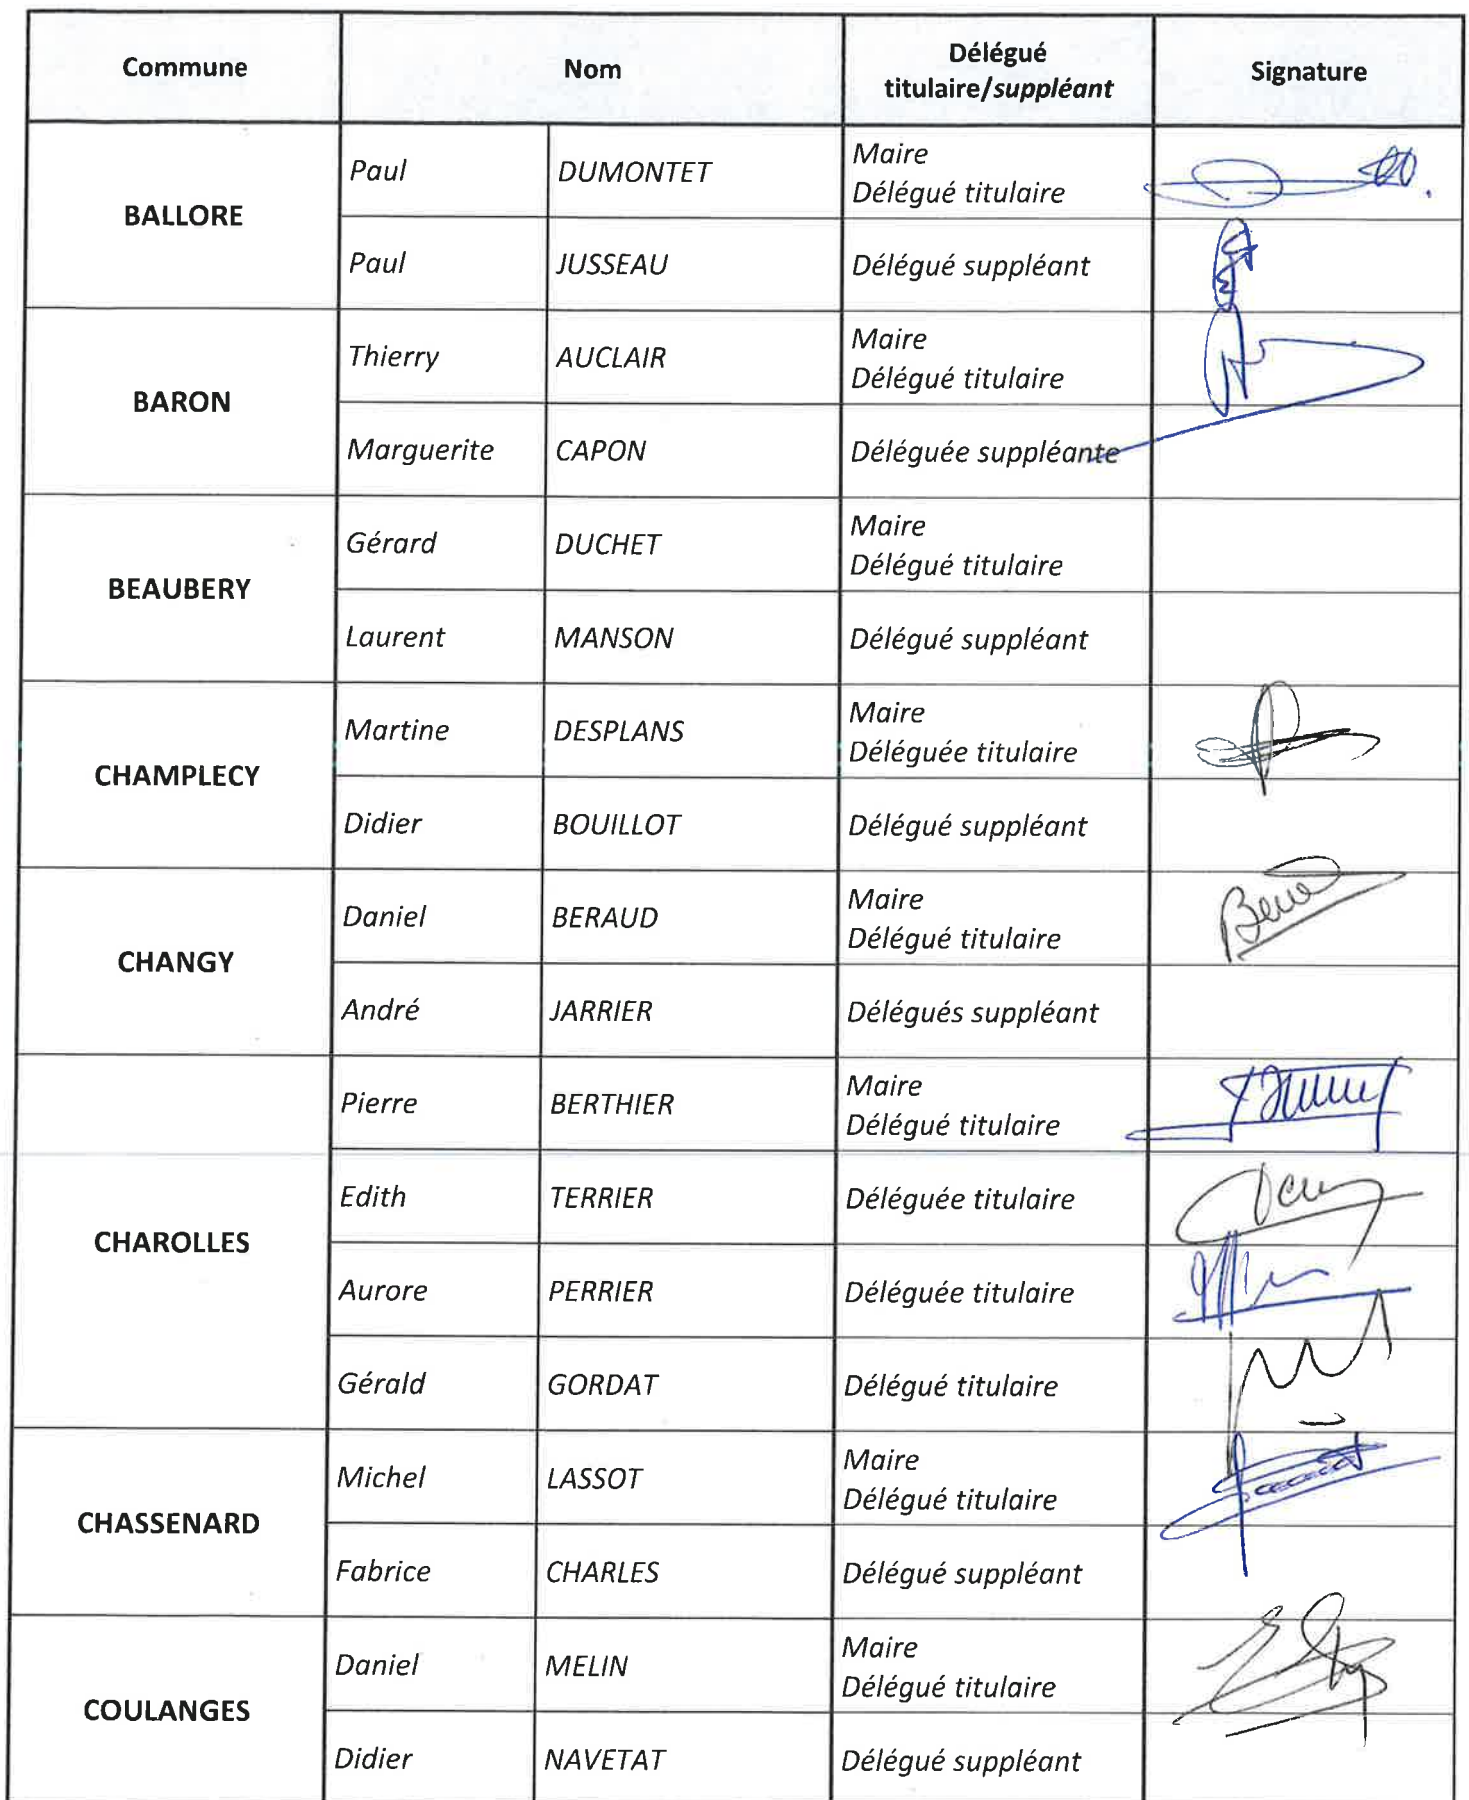 Commune Nom Délégué titulaire/suppléant Signature
BALLORE
Paul DUMONTET Maire
Délégué titulaire
Paul JUSSEAU Délégué suppléant
BARON
Thierry AUCLAIR Maire
Délégué titulaire
Marguerite CAPON Déléguée suppléante
BEAUBERY
Gérard DUCHET Maire
Délégué titulaire
Laurent MANSON Délégué suppléant
CHAMPLECY
Martine DESPLANS Maire
Déléguée titulaire
Didier BOUILLOT Délégué suppléant
CHANGY
Daniel BERAUD Maire
Délégué titulaire
André JARRIER Délégués suppléant
CHAROLLES
Pierre BERTHIER Maire
Délégué titulaire
Edith TERRIER Déléguée titulaire
Aurore PERRIER Déléguée titulaire
Gérald GORDAT Délégué titulaire
CHASSENARD
Michel LASSOT Maire
Délégué titulaire
Fabrice CHARLES Délégué suppléant
COULANGES
Daniel MELIN Maire
Délégué titulaire
Didier NAVETAT Délégué suppléant